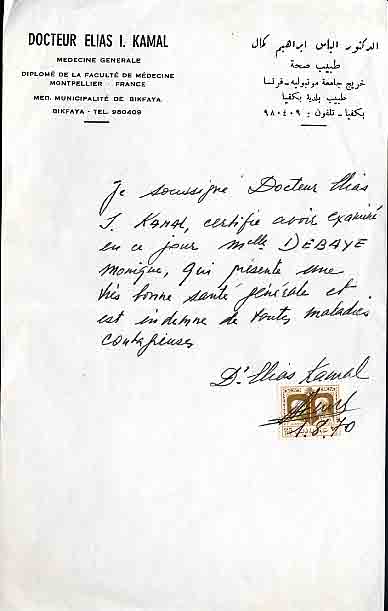 DOCTEUR ELIAS I. KAMAL
MEDECINE GENERALE
DIPLOMÉ DE LA FACULTÉ DE MÉDECINE
MONTPELLIER - FRANCE
MED. MUNICIPALITÉ DE BIKFAYA
BIKFAYA - TEL. 980409
الدكتور الياس ابراهيم كمال
طبيب صحة
خريج جامعة مونبوليه - فرنسا
طبيب بلدية بكفيا
بكفيا - تلفون : ٩٨٠٤٠٩
Je soussigné Docteur Elias
I. Kamal, certifie avoir examiné
en ce jour Melle DEBAYE
Monique, qui présente une
très bonne santé générale et
est indemne de toutes maladies
contagieuses
Dr Elias Kamal
1.8.70